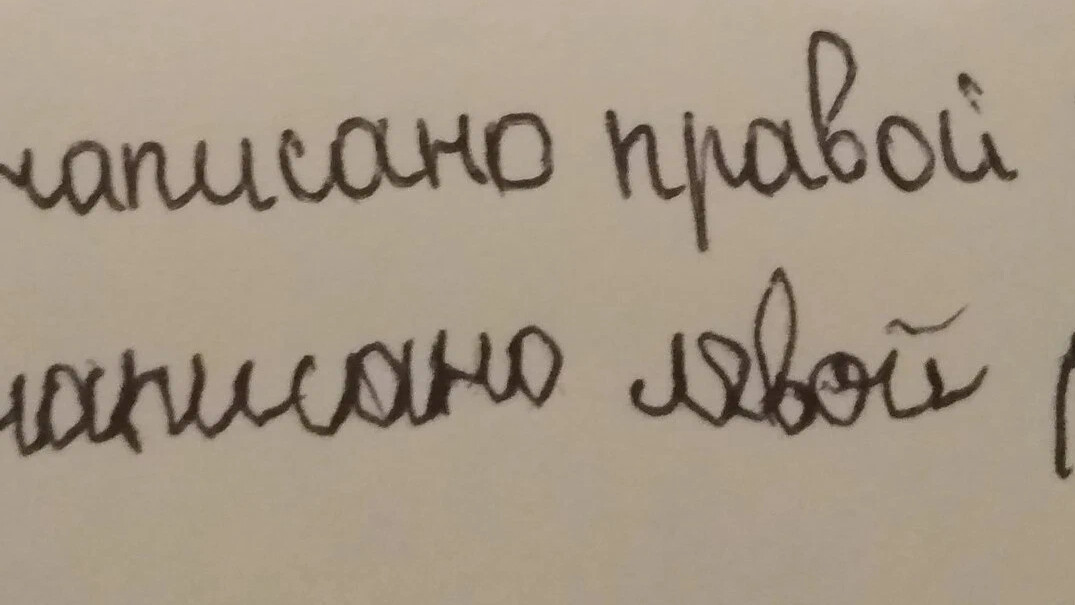 написано правой
написано лявой